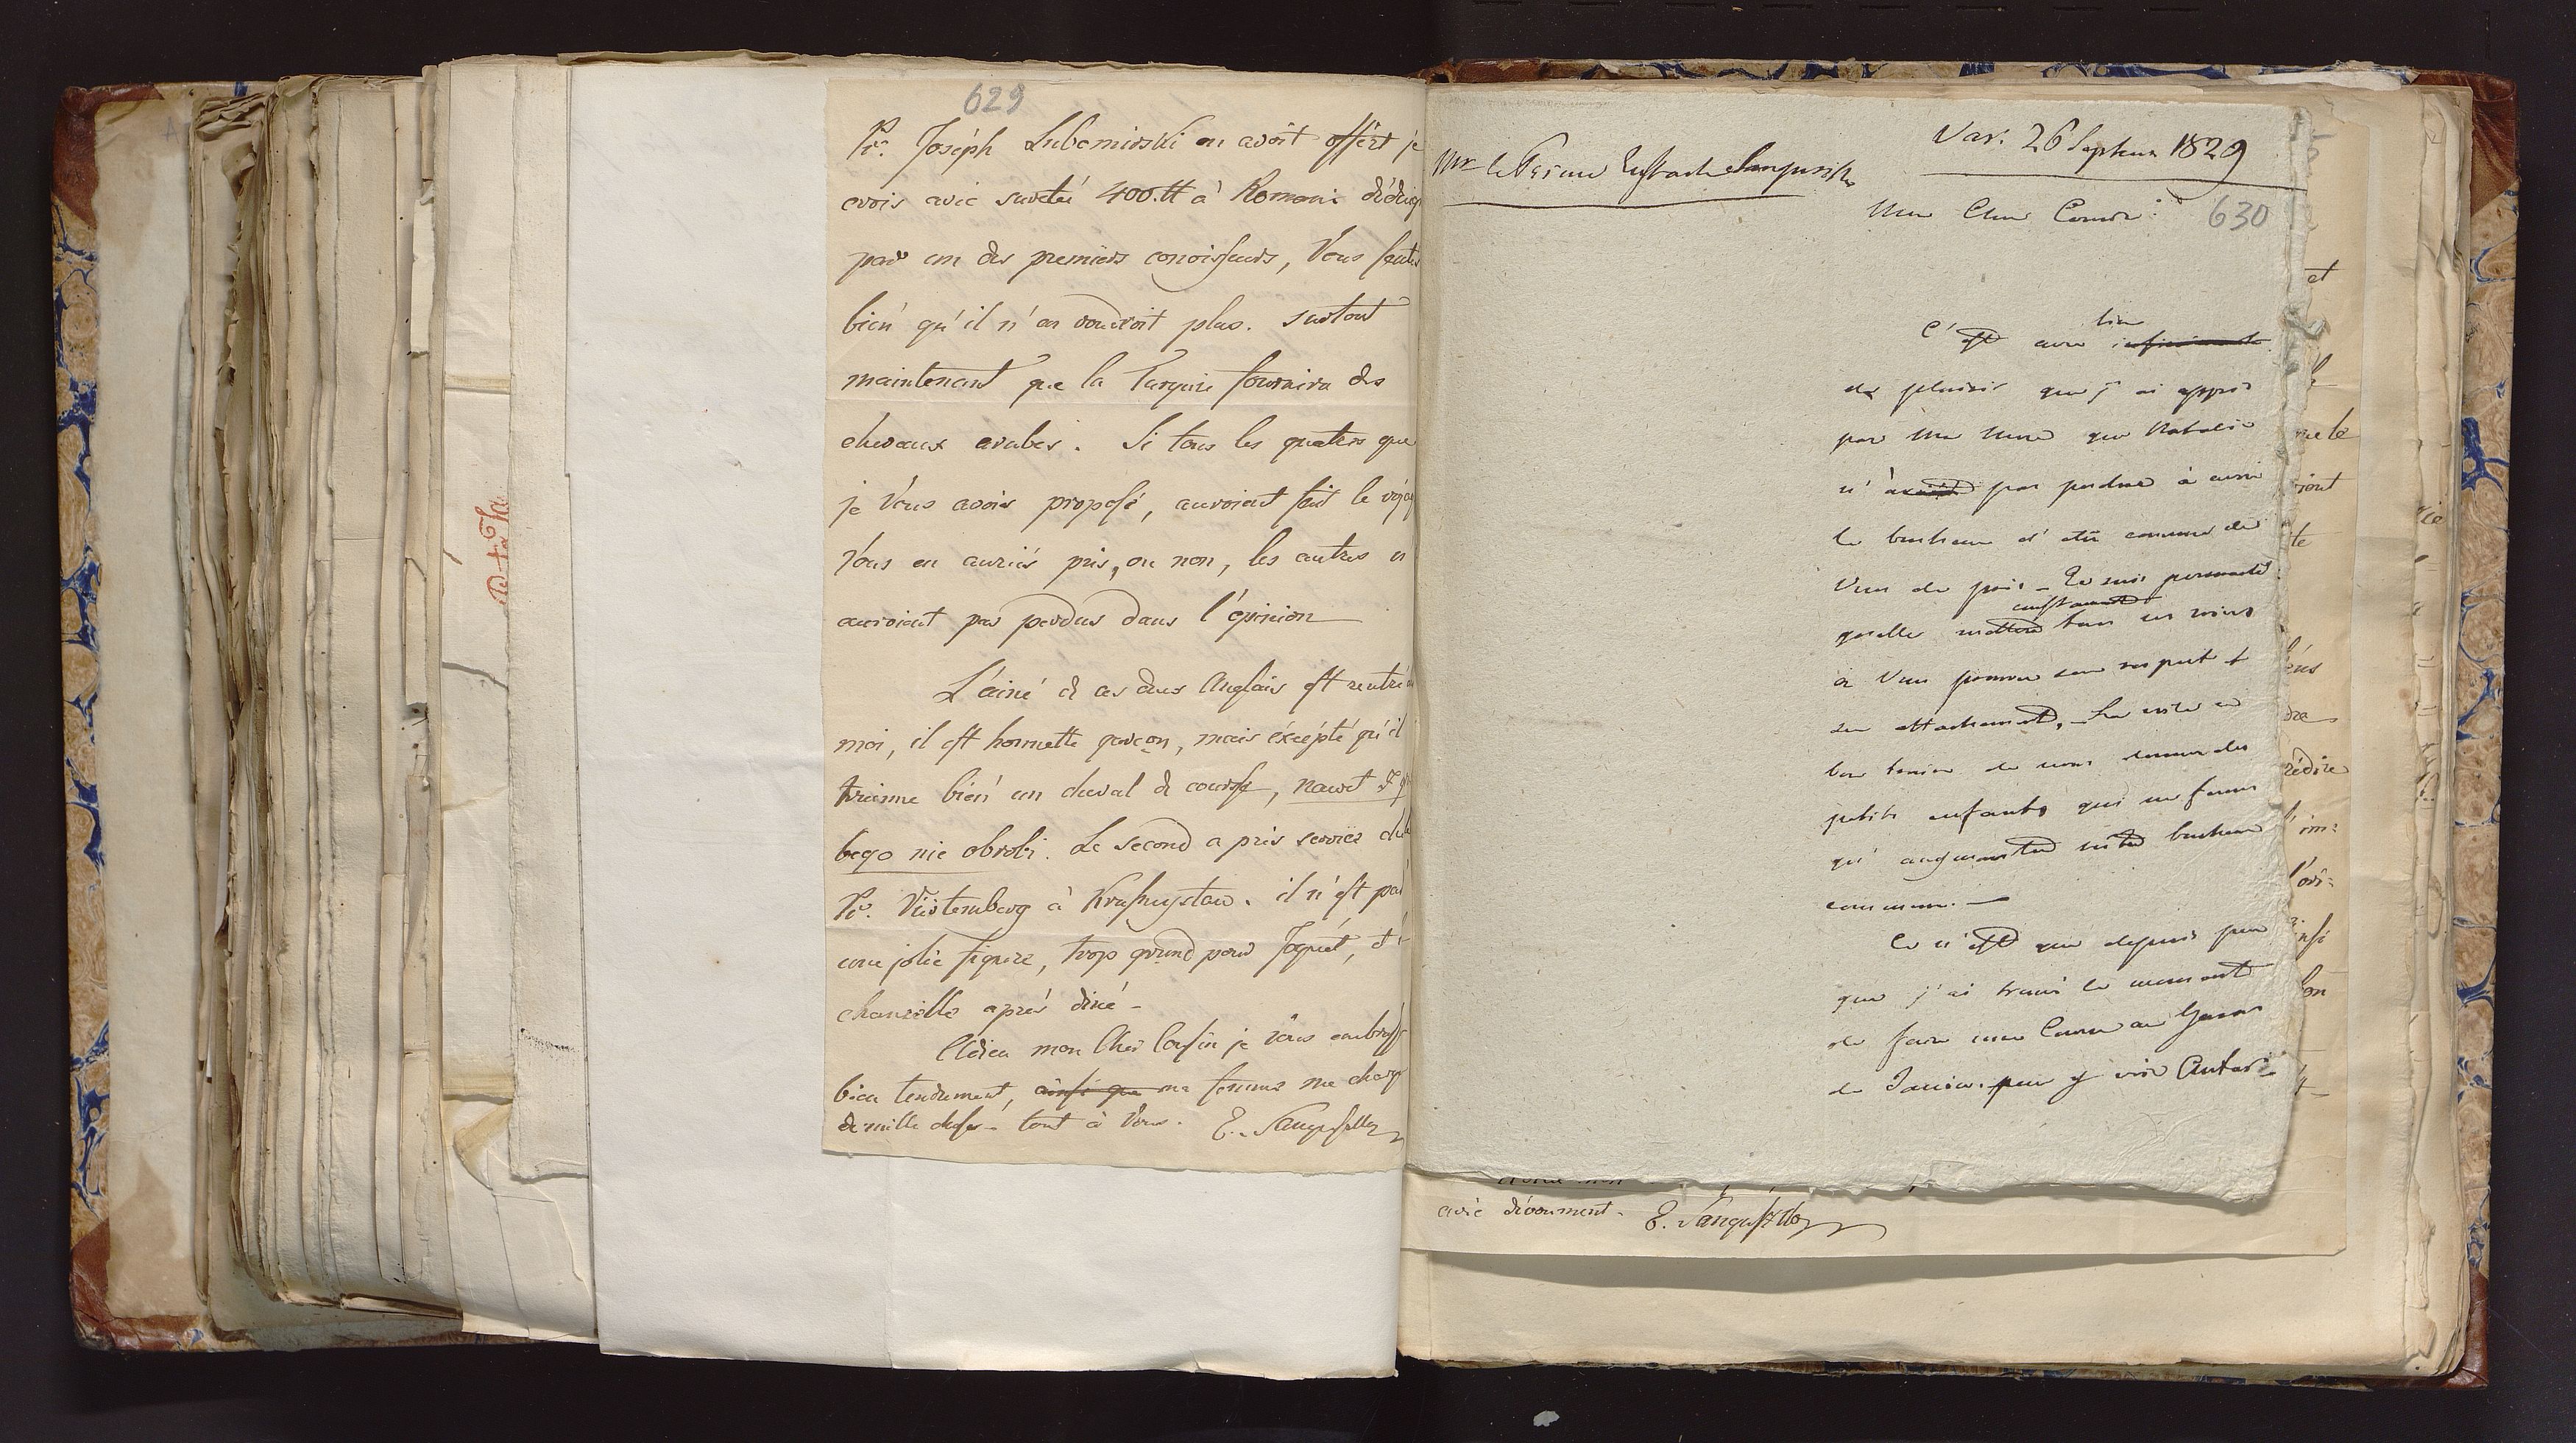 629
Pce. Joséph Lubomirski en avoit offért je
crois avec sureté 400.# à Romani dédeig
par un des premiérs conoisseurs, Vous sentés
bién qu'il n'en voudroit plus. surtout
maintenant que la Turquie fournira des
chevaux arabes. Si tous les quatres que
je Vous avois proposé, auroient fait le voya
Vous en auriés pris, ou non, les autres n
auroient pas perdus dans l'opinion
L'ainé de ces deux Anglais est rentré
moi, il est honnette garçon, mais éxcépté qu'il
trainne bién un cheval de course, nawet
bego nie obrobi. Le second a pris service
Pce. Vürtemberg à Krasnystaw. il n'est pas
une jolie figure, trop grand pour Joquét, et
chancelle aprés diné -
Adieu mon Cher Cousin je vous embrasse
bien tendrement, ainsi que ma femme me charge
de mille choses - tout à Vous. E. Sanguszko
630
Mr le Prince Eustache Sanguszko
Var: 26 Septem 1829
Mon Cher Cousin:
bien
C'est avec infiniment
de plaisir que j'ai appris
par ma mère que Natalie
n'avoit pas perdue à avoir
le bonheur d'etre connue de
Vous de près - Je suis persuadé
constamment
quelle mettera tous ses soins
à Vous prouver son respect &
son attachement, -
bon train de nous donner des
petits enfants qui ne feront
qu'augmenter nôtre bonheur
commun. -
Ce n'est que depuis peu
que j'ai trouvé le moment
de faire une Course au Haras
de Janów. pour y voir Antar
et
te
ront
te
rédire
l'im:
l'ori:
insi
avec dévoument. E. Sanguszko